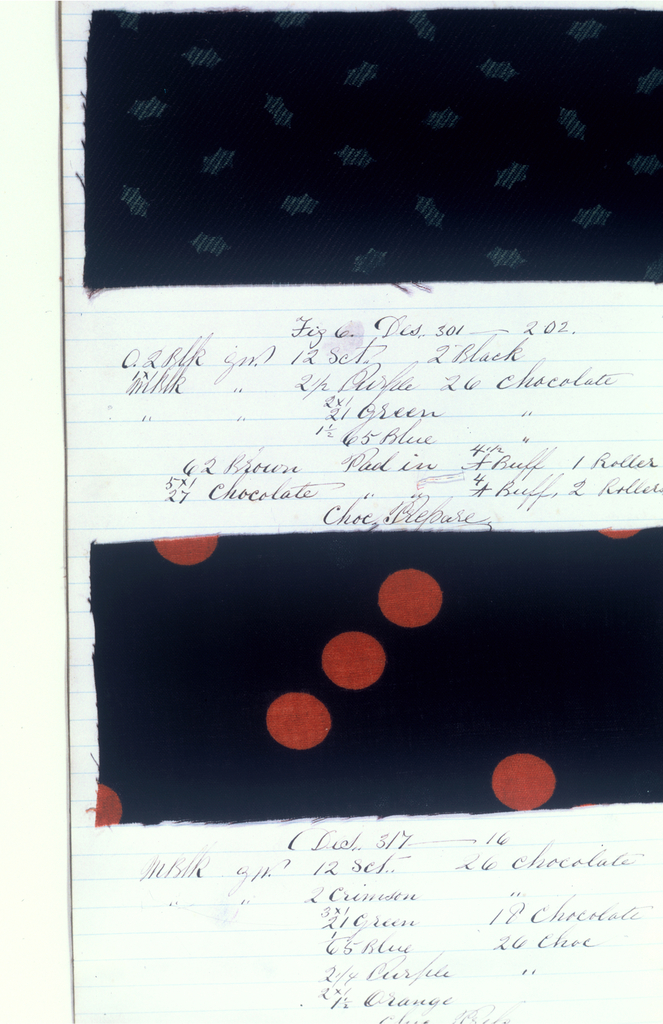 Fig 6. Des. 301 — 202.
O.2 Blk gr. 12 Sct. 2 Black
M Blk " 2/2 Purple 26 Chocolate
" " 2x1 21 Green "
1½ 65 Blue "
62 Brown Pad in 4½ Buff, 1 Roller
5x1 27 Chocolate " " 4 Buff, 2 Rollers
Choc, Prepare
Des. 317 — 16
M Blk gr. 12 Sct. 26 Chocolate
" " 2 Crimson "
3x1 21 Green 18 Chocolate
1 65 Blue 26 Choc
2/4 Purple "
2x1 1½ Orange